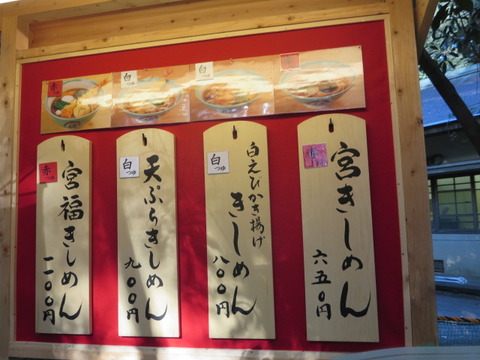 宮きしめん
六五〇円
赤つゆ
白えびかき揚げ
きしめん
八〇〇円
白つゆ
天ぷらきしめん
九〇〇円
白つゆ
宮福きしめん
一一〇〇円
赤つゆ
白
白